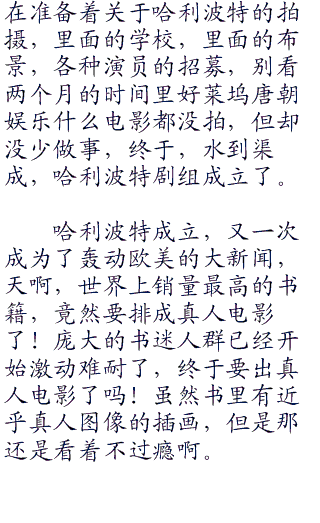 在准备着关于哈利波特的拍
摄，里面的学校，里面的布
景，各种演员的招募，别看
两个月的时间里好莱坞唐朝
娱乐什么电影都没拍，但却
没少做事，终于，水到渠
成，哈利波特剧组成立了。
哈利波特成立，又一次
成为了轰动欧美的大新闻，
天啊，世界上销量最高的书
籍，竟然要排成真人电影
了！庞大的书迷人群已经开
始激动难耐了，终于要出真
人电影了吗！虽然书里有近
乎真人图像的插画，但是那
还是看着不过瘾啊。